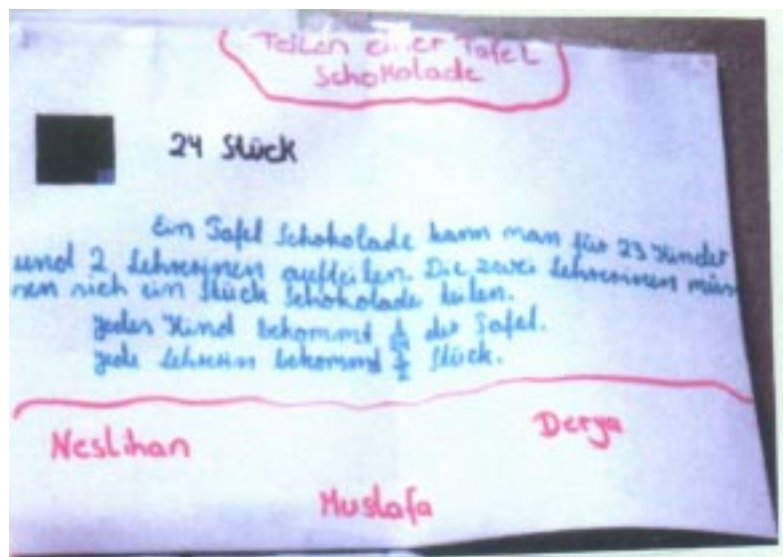 Teilen einer Tafel
Schokolade
24 Stück
Ein Tafel Schokolade kann man für 23 Kinder
und 2 Lehrerinen aufteilen. Die zwei Lehrerinen müs
sen sich ein Stück Schokolade teilen.
Jedes Kind bekommt 1/24 der Tafel.
Jede Lehrerin bekommt 1/2 Stück.
Neslihan
Derya
Mustafa